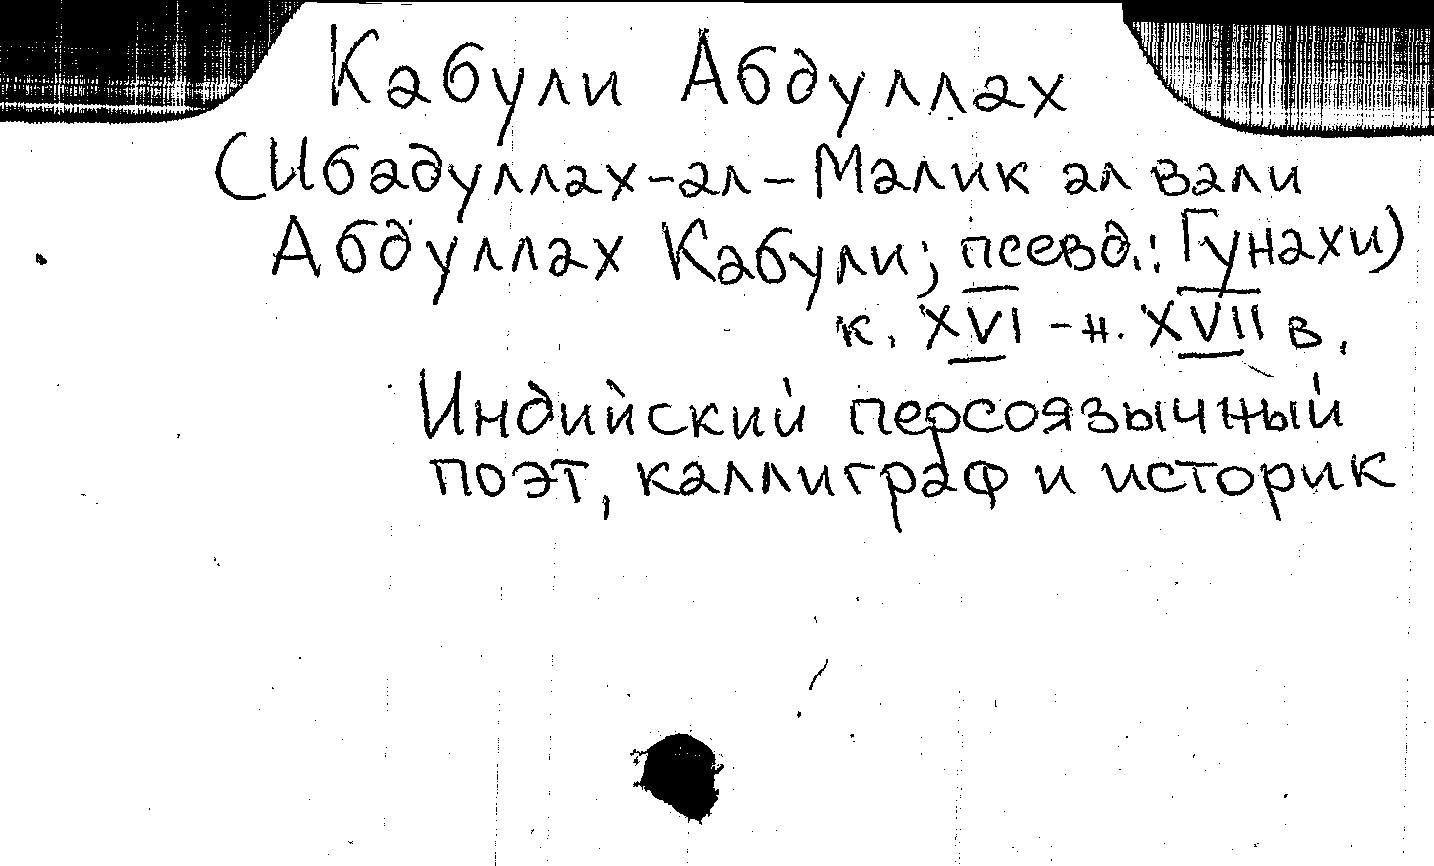 Кабули Абдуллах
(Ибадуллах-ал-Малик ал вали
Абдуллах Кабули; псевд.: Гунахи)
к. XVI - н. XVII в.
Индийский персоязычный
поэт, каллиграф и историк